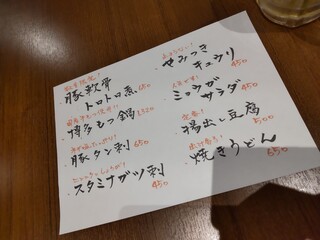 豚軟骨
トロトロ煮 650
博多もつ鍋 1,320
豚タン刺 650
スタミナガツ刺
450
やみつき
キュウリ
450
ミョウガ
サラダ 450
定番!
揚出し豆腐
500
焼きうどん
650